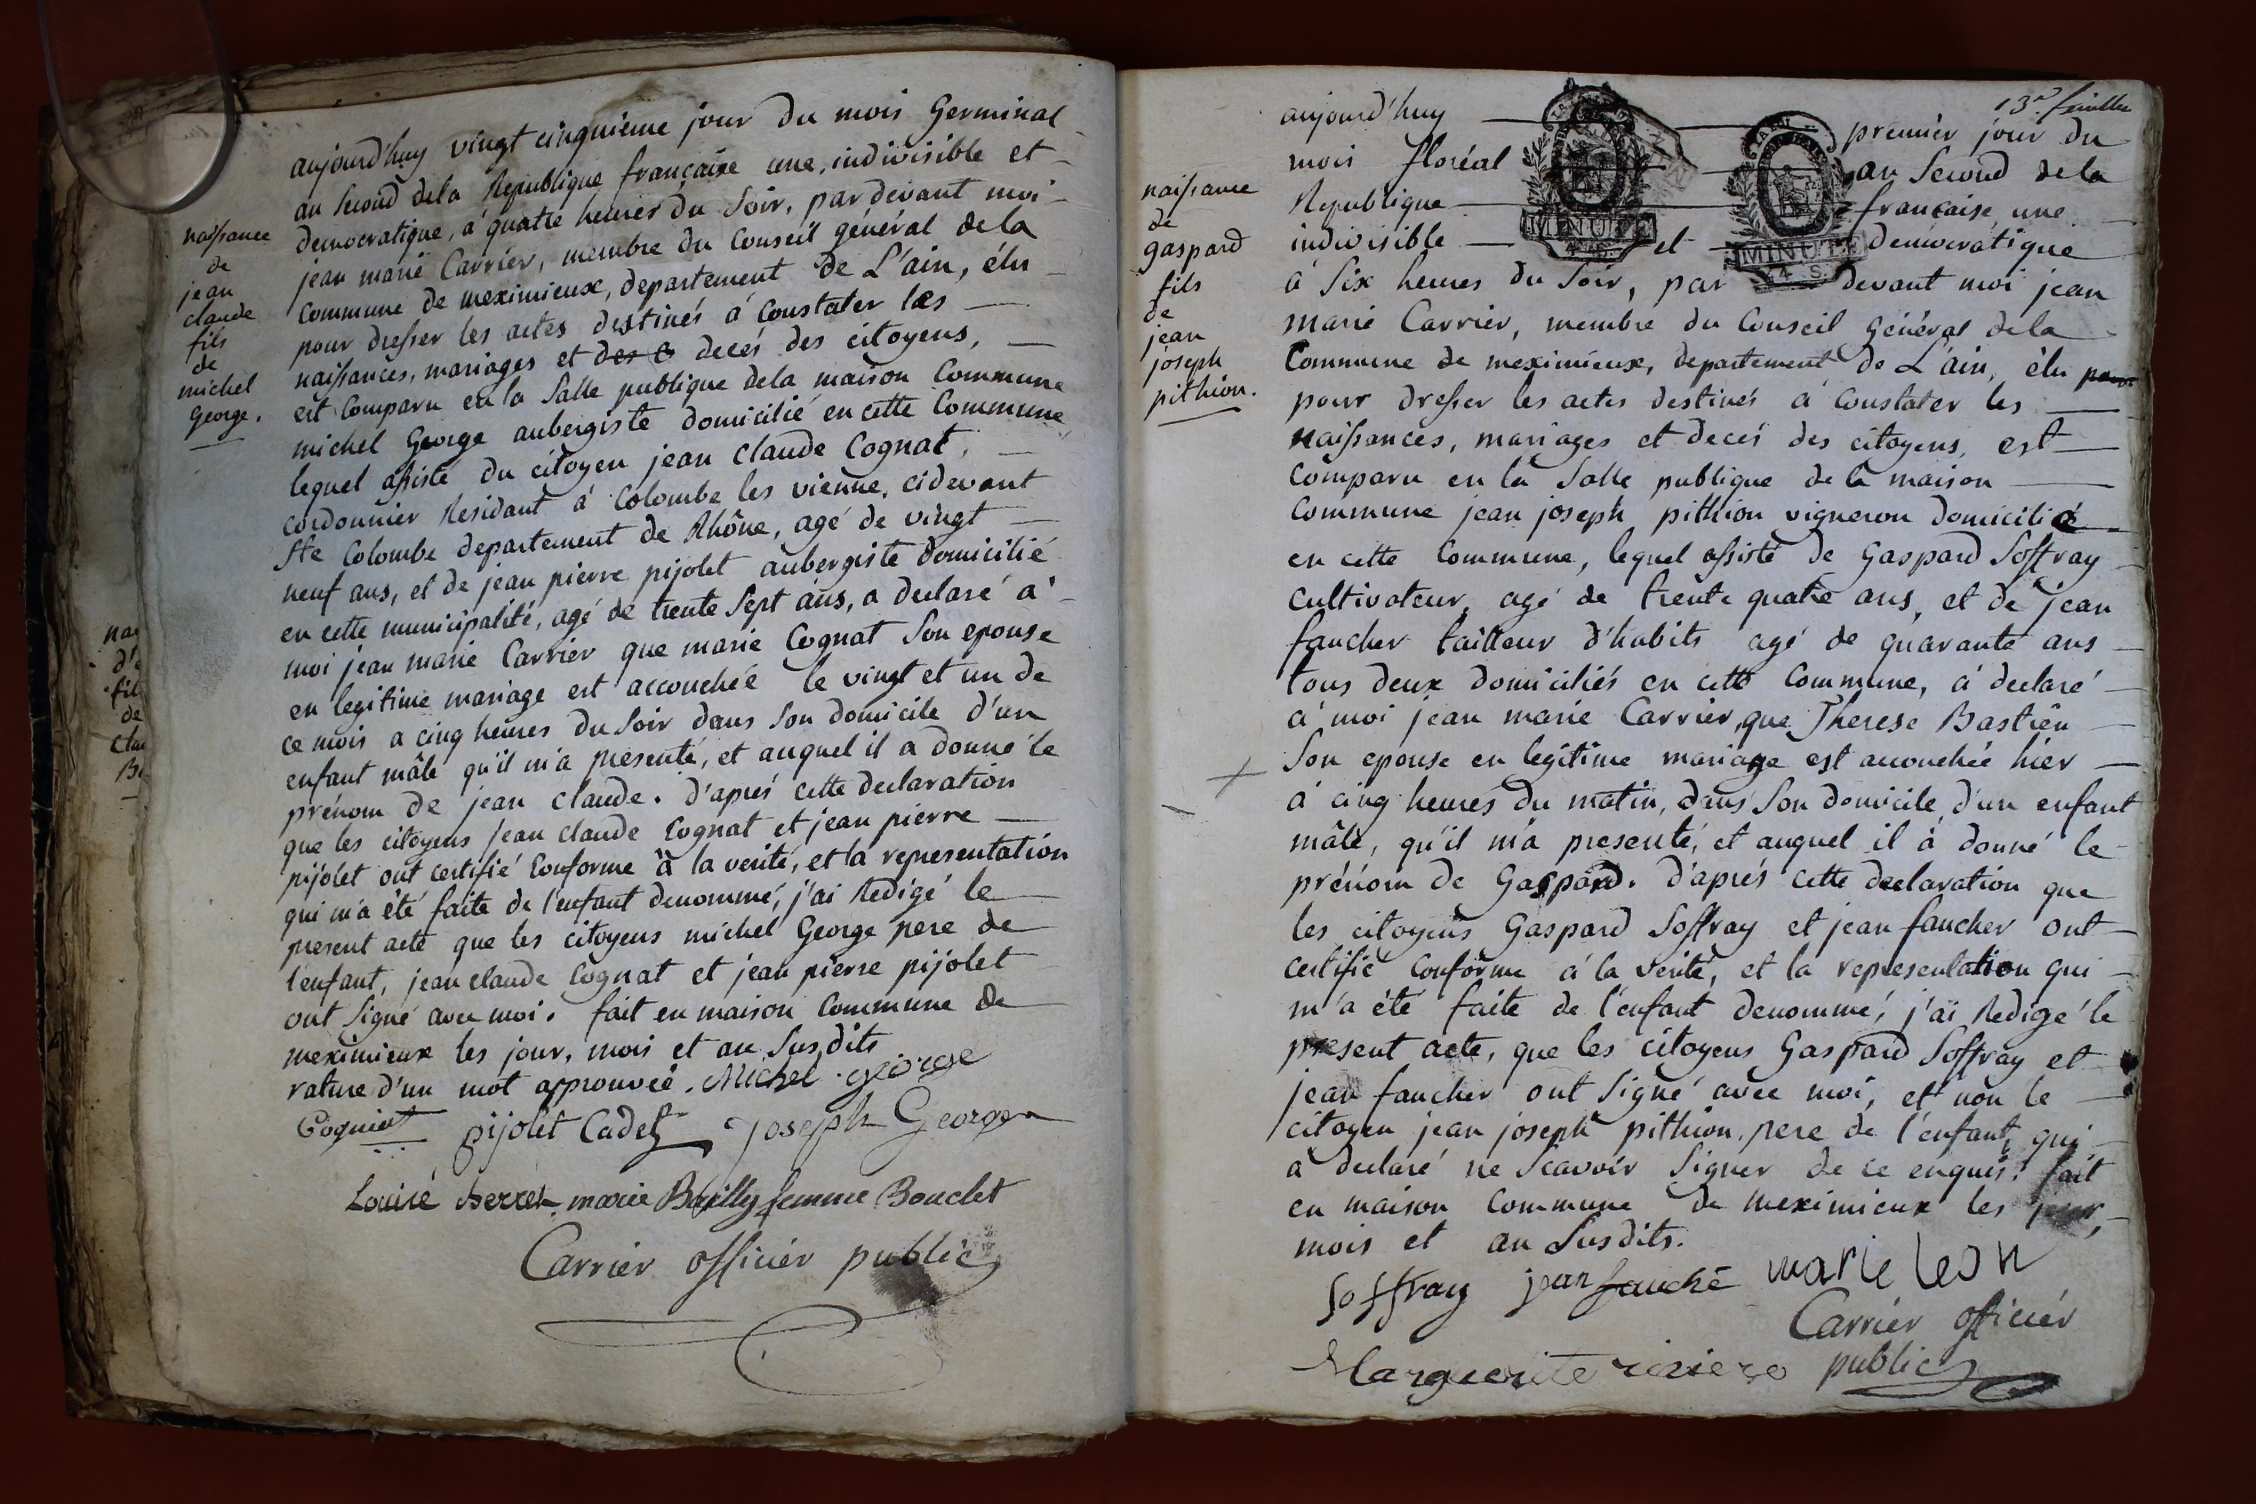 naissance
de
jean
claude
fils
de
michel
george.
aujourd'huy vingt cinquieme jour du mois Germinal
an second dela Republique française une, indivisible et
democratique, à quatre heures du soir, pardevant moi
jean marie Carrier, membre du Conseil général dela
Commune de meximieux, departement de L'ain, élu
pour dresser les actes destinés à Constater les
naissances, mariages et des decés des citoyens,
est Comparu en la Salle publique dela maison Commune
michel George aubergiste domicilié en cette Commune
lequel assisté du citoyen jean claude Cognat,
cordonnier Residant à Colombe les vienne, cidevant
Ste Colombe departement de Rhône, agé de vingt
neuf ans, et de jean pierre pijolet aubergiste domicilié
en cette municipalité, agé de trente sept ans, a declaré à
moi jean marie Carrier que marie Cognat son epouse
en legitime mariage est accouchée le vingt et un de
ce mois a cinq heures du soir dans son domicile d'un
enfant mâle qu'il m'a presenté, et auquel il a donné le
prénom de jean claude. d'aprés cette declaration
que les citoyens jean claude Cognat et jean pierre
pijolet ont certifié Conforme à la verité, et la representation
qui m'a été faite de l'enfant denommé, j'ai Redigé le
present acte que les citoyens michel George pere de
l'enfant, jean claude Cognat et jean pierre pijolet
ont signé avec moi. fait en maison Commune de
meximieux les jour, mois et an susdits
rature d'un mot approuveé. Michel george
Cogniat pijolet Cadet joseph George
Louise marie Bailly femme Bouclet
Carrier officier public
13e feuillet
naissance
de
gaspard
fils
de
jean
joseph
pithion.
aujourd'huy premier jour du
mois floréal an second dela
Republique française une
indivisible et democratique
à six heures du soir, par devant moi jean
marie Carrier, membre du Conseil Général dela
Commune de meximieux, departement de L'ain, élu pour
pour dresser les actes destinés à Constater les
naissances, mariages et decés des citoyens, est
Comparu en la Salle publique de la maison
Commune jean joseph pithion vigneron domicilié
en cette Commune, lequel assisté de Gaspard Soffray
Cultivateur, agé de trente quatre ans, et de jean
faucher tailleur d'habits agé de quarante ans
tous deux domiciliés en cette Commune, à declaré
à moi jean marie Carrier, que Therese Bastien
son epouse en legitime mariage est accouchée hier
à cinq heures du matin, dans son domicile d'un enfant
mâle, qu'il m'a presenté, et auquel il à donné le
prénom de Gaspard. d'aprés cette declaration que
les citoyens Gaspard Soffray et jean faucher ont
certifié Conforme à la verité, et la representation qui
m'a été faite de l'enfant denommé, j'ai Redigé le
present acte, que les citoyens Gaspard Soffray et
jean faucher ont signé avec moi, et non le
citoyen jean joseph pithion, pere de l'enfant, qui
à declaré ne scavoir signer de ce enquis. fait
en maison Commune de meximieux les jour,
mois et an susdits.
soffray jean fauché marie leon
Carrier officier
Marguerite riviere public
MINUTE
4 S.
MINUTE
4 S.